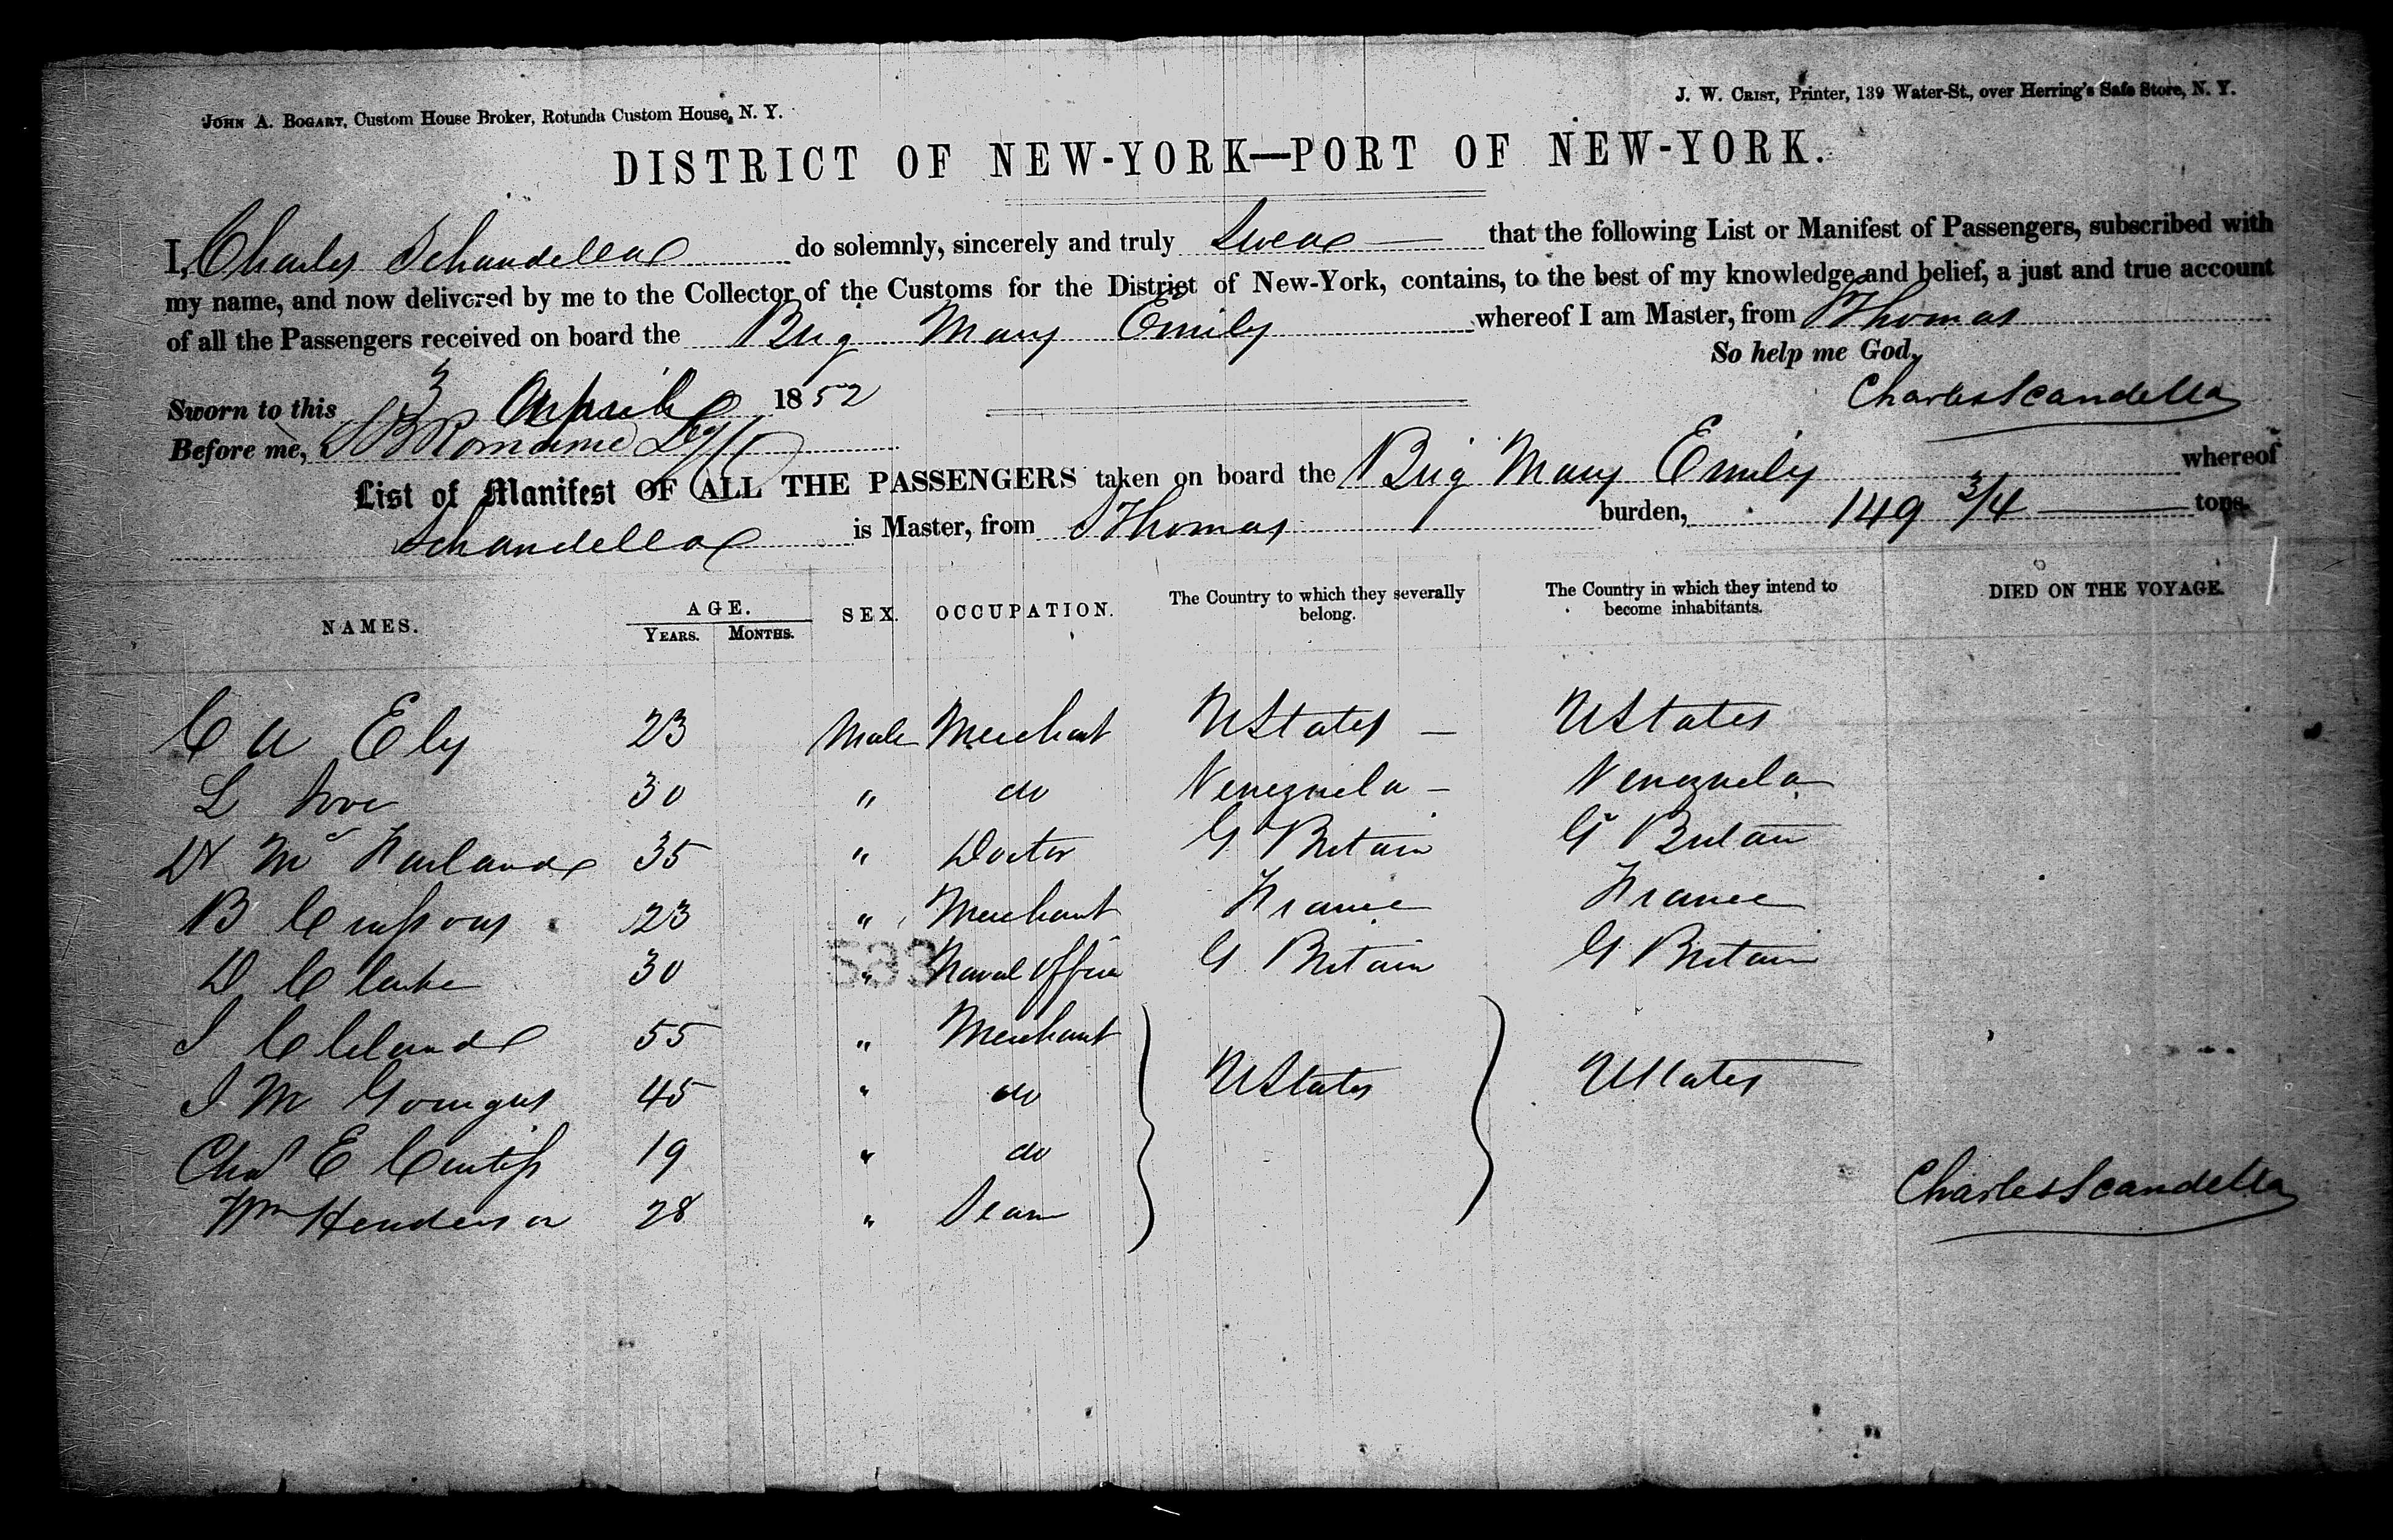 JOHN A. BOGART, Custom House Broker, Rotunda Custom House, N. Y.
J. W. CRIST, Printer, 139 Water-St., over Herring's Safe Store, N. Y.
DISTRICT OF NEW-YORK—PORT OF NEW-YORK.
I, Charles Schandella do solemnly, sincerely and truly Swear that the following List or Manifest of Passengers, subscribed with
my name, and now delivered by me to the Collector of the Customs for the District of New-York, contains, to the best of my knowledge and belief, a just and true account
of all the Passengers received on board the Brig Mary Emily whereof I am Master, from St Thomas
So help me God,
Sworn to this 3 April 1852
Charles Scandella
Before me,
List of Manifest OF ALL THE PASSENGERS taken on board the Brig Mary Emily whereof
Schandella is Master, from St Thomas burden, 149 3/4 tons.
NAMES. AGE. YEARS. MONTHS. SEX. OCCUPATION. The Country to which they severally belong. The Country in which they intend to become inhabitants. DIED ON THE VOYAGE.
C A Ely 23 Male Merchant U States — U States
L 30 " do Venezuela — Venezuela
Dr Mc Farland 35 " Doctor G Britain Gt Britain
B 23 " Merchant France France
583
D Clarke 30 " Naval Officer G Britain G Britain
J Cleland 55 " Merchant
J M 45 " do U States U States
Chas E Curtiss 19 " do
Wm Henderson 28 " Seam
Charles Scandella